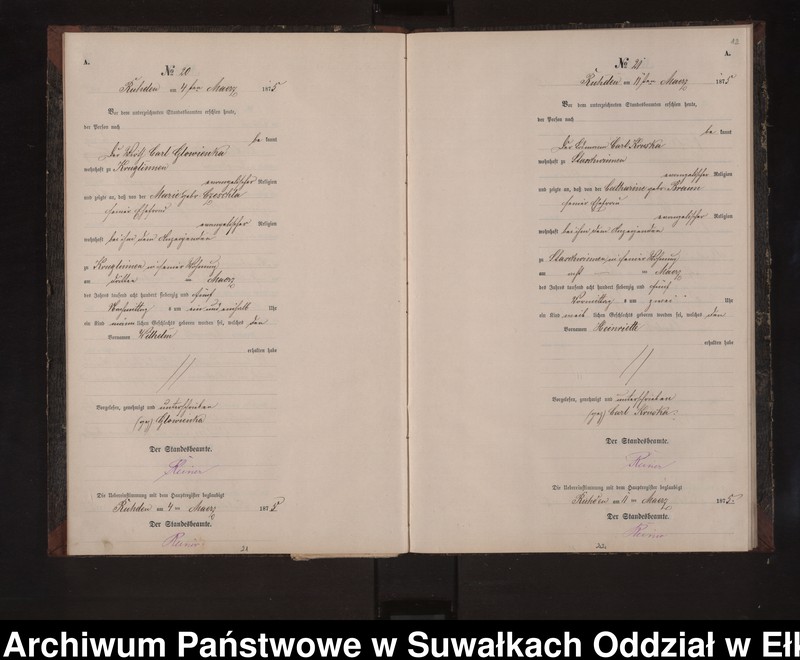 A.
№ 20
Ruhden am 4ten Maerz 1875
Vor dem unterzeichneten Standesbeamten erschien heute,
der Person nach
be kannt
Carl Glowienka
wohnhaft zu
evangelischer Religion
und zeigte an, daß von der Marie geb.
seiner Ehefrau
evangelischer Religion
wohnhaft bei ihm dem Anzeigenden
zu in seiner Wohnung
am dritten ten Maerz
des Jahres tausend acht hundert siebenzig und fünf
Nachmittag s um ein und einhalb Uhr
ein Kind männlichen Geschlechts geboren worden sei, welches den
Vornamen Wilhelm
erhalten habe
Vorgelesen, genehmigt und unterschrieben
(gez) Glowienka
Der Standesbeamte.
Die Uebereinstimmung mit dem Hauptregister beglaubigt
Ruhden am 4 ten Maerz 1875.
Der Standesbeamte.
A.
№ 21
Ruhden am 11ten Maerz 1875
Vor dem unterzeichneten Standesbeamten erschien heute,
der Person nach
be kannt
Der Carl
wohnhaft zu
evangelischer Religion
und zeigte an, daß von der Catharine geb.
seiner Ehefrau
evangelischer Religion
wohnhaft bei ihm dem Anzeigenden
zu in seiner Wohnung
am ten Maerz
des Jahres tausend acht hundert siebenzig und fünf
Vormittag s um zwei Uhr
ein Kind weiblichen Geschlechts geboren worden sei, welches den
Vornamen Heinriette
erhalten habe
Vorgelesen, genehmigt und unterschrieben
(gez) Carl
Der Standesbeamte.
Die Uebereinstimmung mit dem Hauptregister beglaubigt
Ruhden am 11 ten Maerz 1875.
Der Standesbeamte.
Archiwum Państwowe w Suwałkach Oddział w Ełk